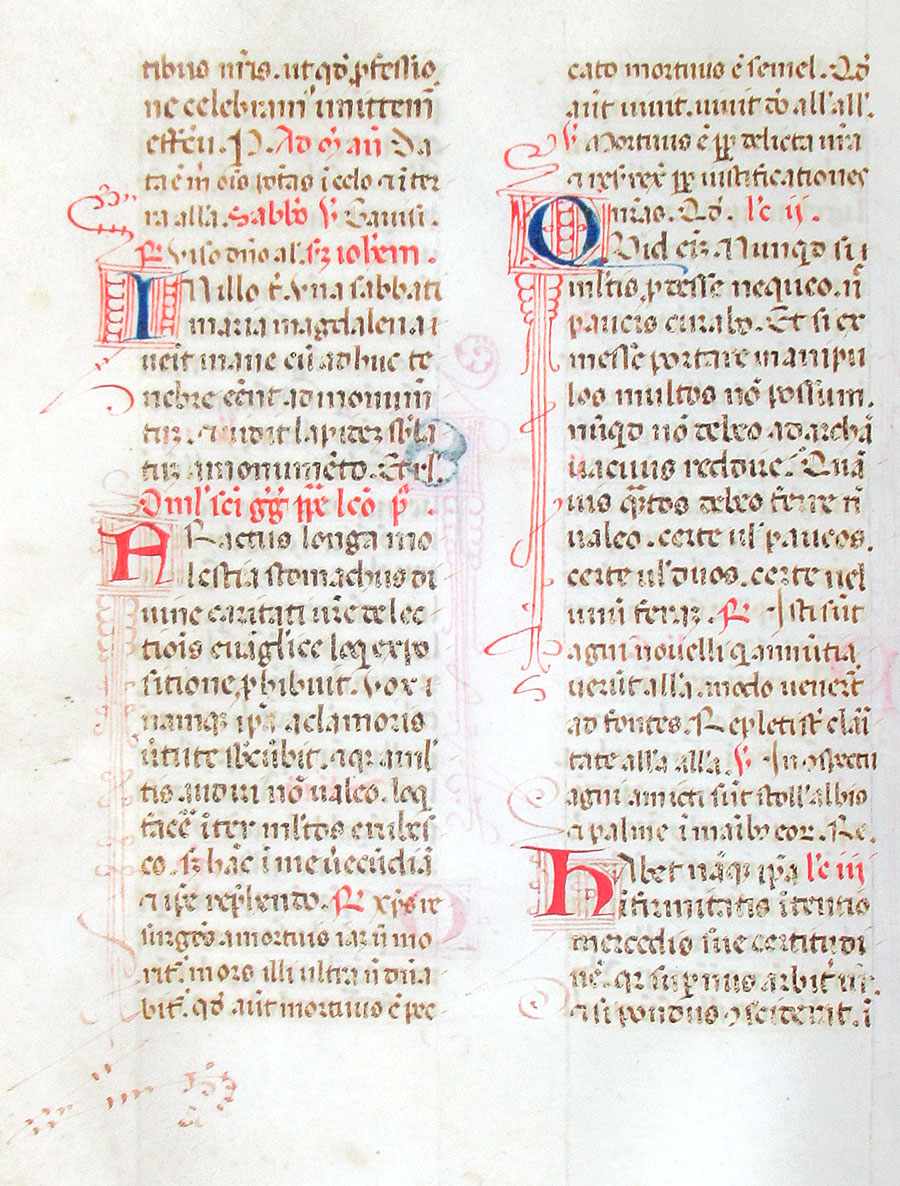 tibus nr̃is. ut qd̓ ꝓfessio
ne celebram᷒ imittem̃
effc̃u. P. Ad ṁ añ Da
ta ẽ m̃ oĩs potãs ĩ celo ⁊ ĩ ter
ra alľa. Sabbo̓ ℣ Gauisi.
℟ Viso dño al. sʒ ioħem.
IN illo t̃. Vna sabbati
maria magdalena
ueĩt mane cũ adhuc te
nebre eẽnt. ad monum̃
tũ. ⁊ uidit lapidez sb̓la
tũ a monumẽto. Et rľ.
Omľ. sc̃i gg̓ ppẽ lcõ pͣ.
FRactus longa mo
lestia stomachus di
uine caritati ur̃e de lec
tiõis euãglice loq̃ expo
sitione ꝓhibuit. Vox
namqʒ ip̃a a clamoris
ũtute sb̓cũbit. aqʒ a mľ
tis audiri nõ ualeo. loq
fateor̃ ĩter mľtos erubes
co. sʒ hãc ĩ me ũecũdiã
⁊ ip̃e rep̃hendo. ℟ Xp̃s re
surgẽs a mortuis iaʒ ñ mo
rit᷒. mors illi ultra ñ dñia
bit᷒. qd̓ aũt mortuus ẽ pec
cato mortuus ẽ semel. Qd̓
aũt uiuit. uiuit do̓ alľ alľ.
℣ Mortuus ẽ ꝓp delicta nr̃a
⁊ rex̃ rex̃ ꝓp iustificationes
nr̃as. Qd̓. lc̃ ii.
QUid eĩʒ. Nunqd̓ si ĩ
mľtis ꝓdesse nequeo. ñ
paucis curabo. Et si ex
messe portare manipu
los multos nõ possum.
nũqd̓ nõ debeo ad archã
uacuus redire. Quã
uis qͣ̃tos debeo fẽrre ñ
ualeo. certe uľ paucos.
certe uľ duos. certe uel
unũ ferã. ℟ Isti sũt
agni nouelli q̃ annũtia
uerũt alľa. modo uenerũt
ad fontes. Repleti st̃ clãi
tate alľa alľa. ℣ In ɔspectu
agni amicti sũt stolľ albis
⁊ palme ĩ maĩbꝰ eoꝝ. Re.
HAbet nãqʒ ip̃a lc̃ iii
ĩfirmitatis ĩtentio
mercedis sue certitudi
nẽ. qʒ sup̃nus arbit᷒
⁊ si pondus ɔsiderit. ĩ